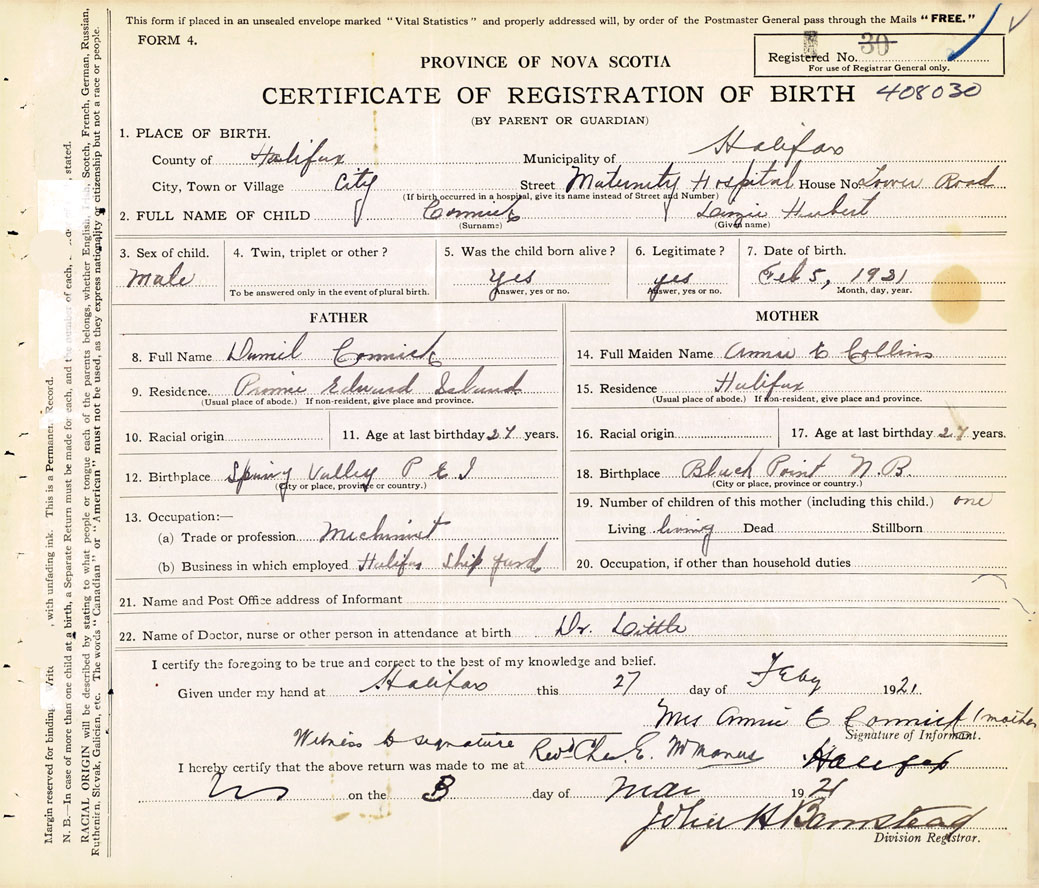 This form if placed in an unsealed envelope marked "Vital Statistics" and properly addressed will, by order of the Postmaster General pass through the Mails "FREE."
FORM 4.
Registered No. 30
For use of Registrar General only.
PROVINCE OF NOVA SCOTIA
CERTIFICATE OF REGISTRATION OF BIRTH 408030
(BY PARENT OR GUARDIAN)
1. PLACE OF BIRTH.
County of Halifax Municipality of Halifax
City, Town or Village City Street Maternity Hospital House No. Tower Road
(If birth occurred in a hospital, give its name instead of Street and Number)
2. FULL NAME OF CHILD Cormick Hubert
(Surname) (Given name)
3. Sex of child. 4. Twin, triplet or other? 5. Was the child born alive? 6. Legitimate? 7. Date of birth.
Male yes yes Feb 5, 1921
To be answered only in the event of plural birth. Answer, yes or no. Answer, yes or no. Month, day, year.
FATHER
8. Full Name Daniel Cormick
9. Residence. Prince Edward Island
(Usual place of abode.) If non-resident, give place and province.
10. Racial origin 11. Age at last birthday 27 years.
12. Birthplace Spring Valley P E I
(City or place, province or country.)
13. Occupation:—
(a) Trade or profession Machinist
(b) Business in which employed Halifax Ship yard
MOTHER
14. Full Maiden Name Annie E Collins
15. Residence Halifax
(Usual place of abode.) If non-resident, give place and province.
16. Racial origin 17. Age at last birthday 27 years.
18. Birthplace Point N.B.
(City or place, province or country.)
19. Number of children of this mother (including this child.) one
Living living Dead Stillborn
20. Occupation, if other than household duties
21. Name and Post Office address of Informant
22. Name of Doctor, nurse or other person in attendance at birth Dr. Little
I certify the foregoing to be true and correct to the best of my knowledge and belief.
Given under my hand at Halifax this 27 day of Feby 1921.
Mrs Annie E Cormick (mother
Signature of Informant.
Witness to signature Revd Chas. E. McManus
I hereby certify that the above return was made to me at Halifax
on the 3 day of Mar 1921
John H Barnstead
Division Registrar.
Margin reserved for binding. Write , with unfading ink. This is a Permanent Record.
N. B.—In case of more than one child at a birth, a Separate Return must be made for each, and the number of each, stated.
RACIAL ORIGIN will be described by stating to what people or tongue each of the parents belongs, whether English, Irish, Scotch, French, German, Russian,
Ruthenian, Slovak, Galician, etc. The words "Canadian" or "American" must not be used, as they express nationality or citizenship but not a race or people.